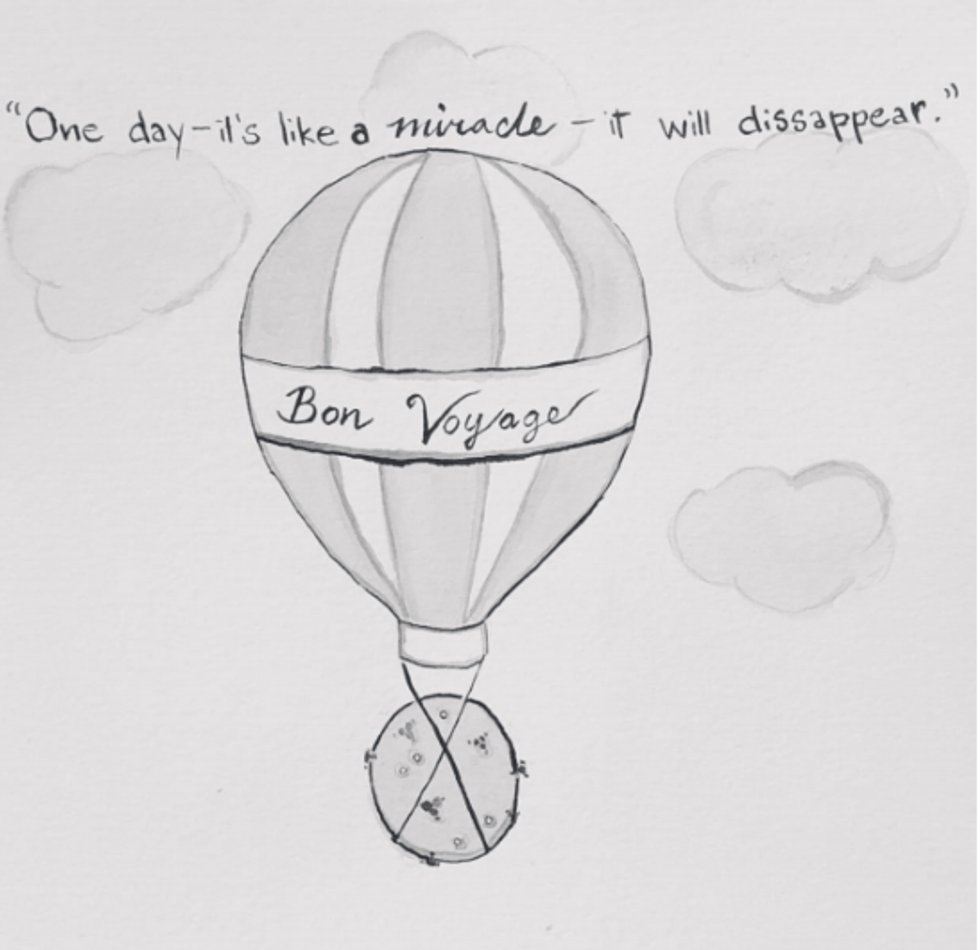 "One day-it's like a miracle - it will dissappear."
Bon Voyage